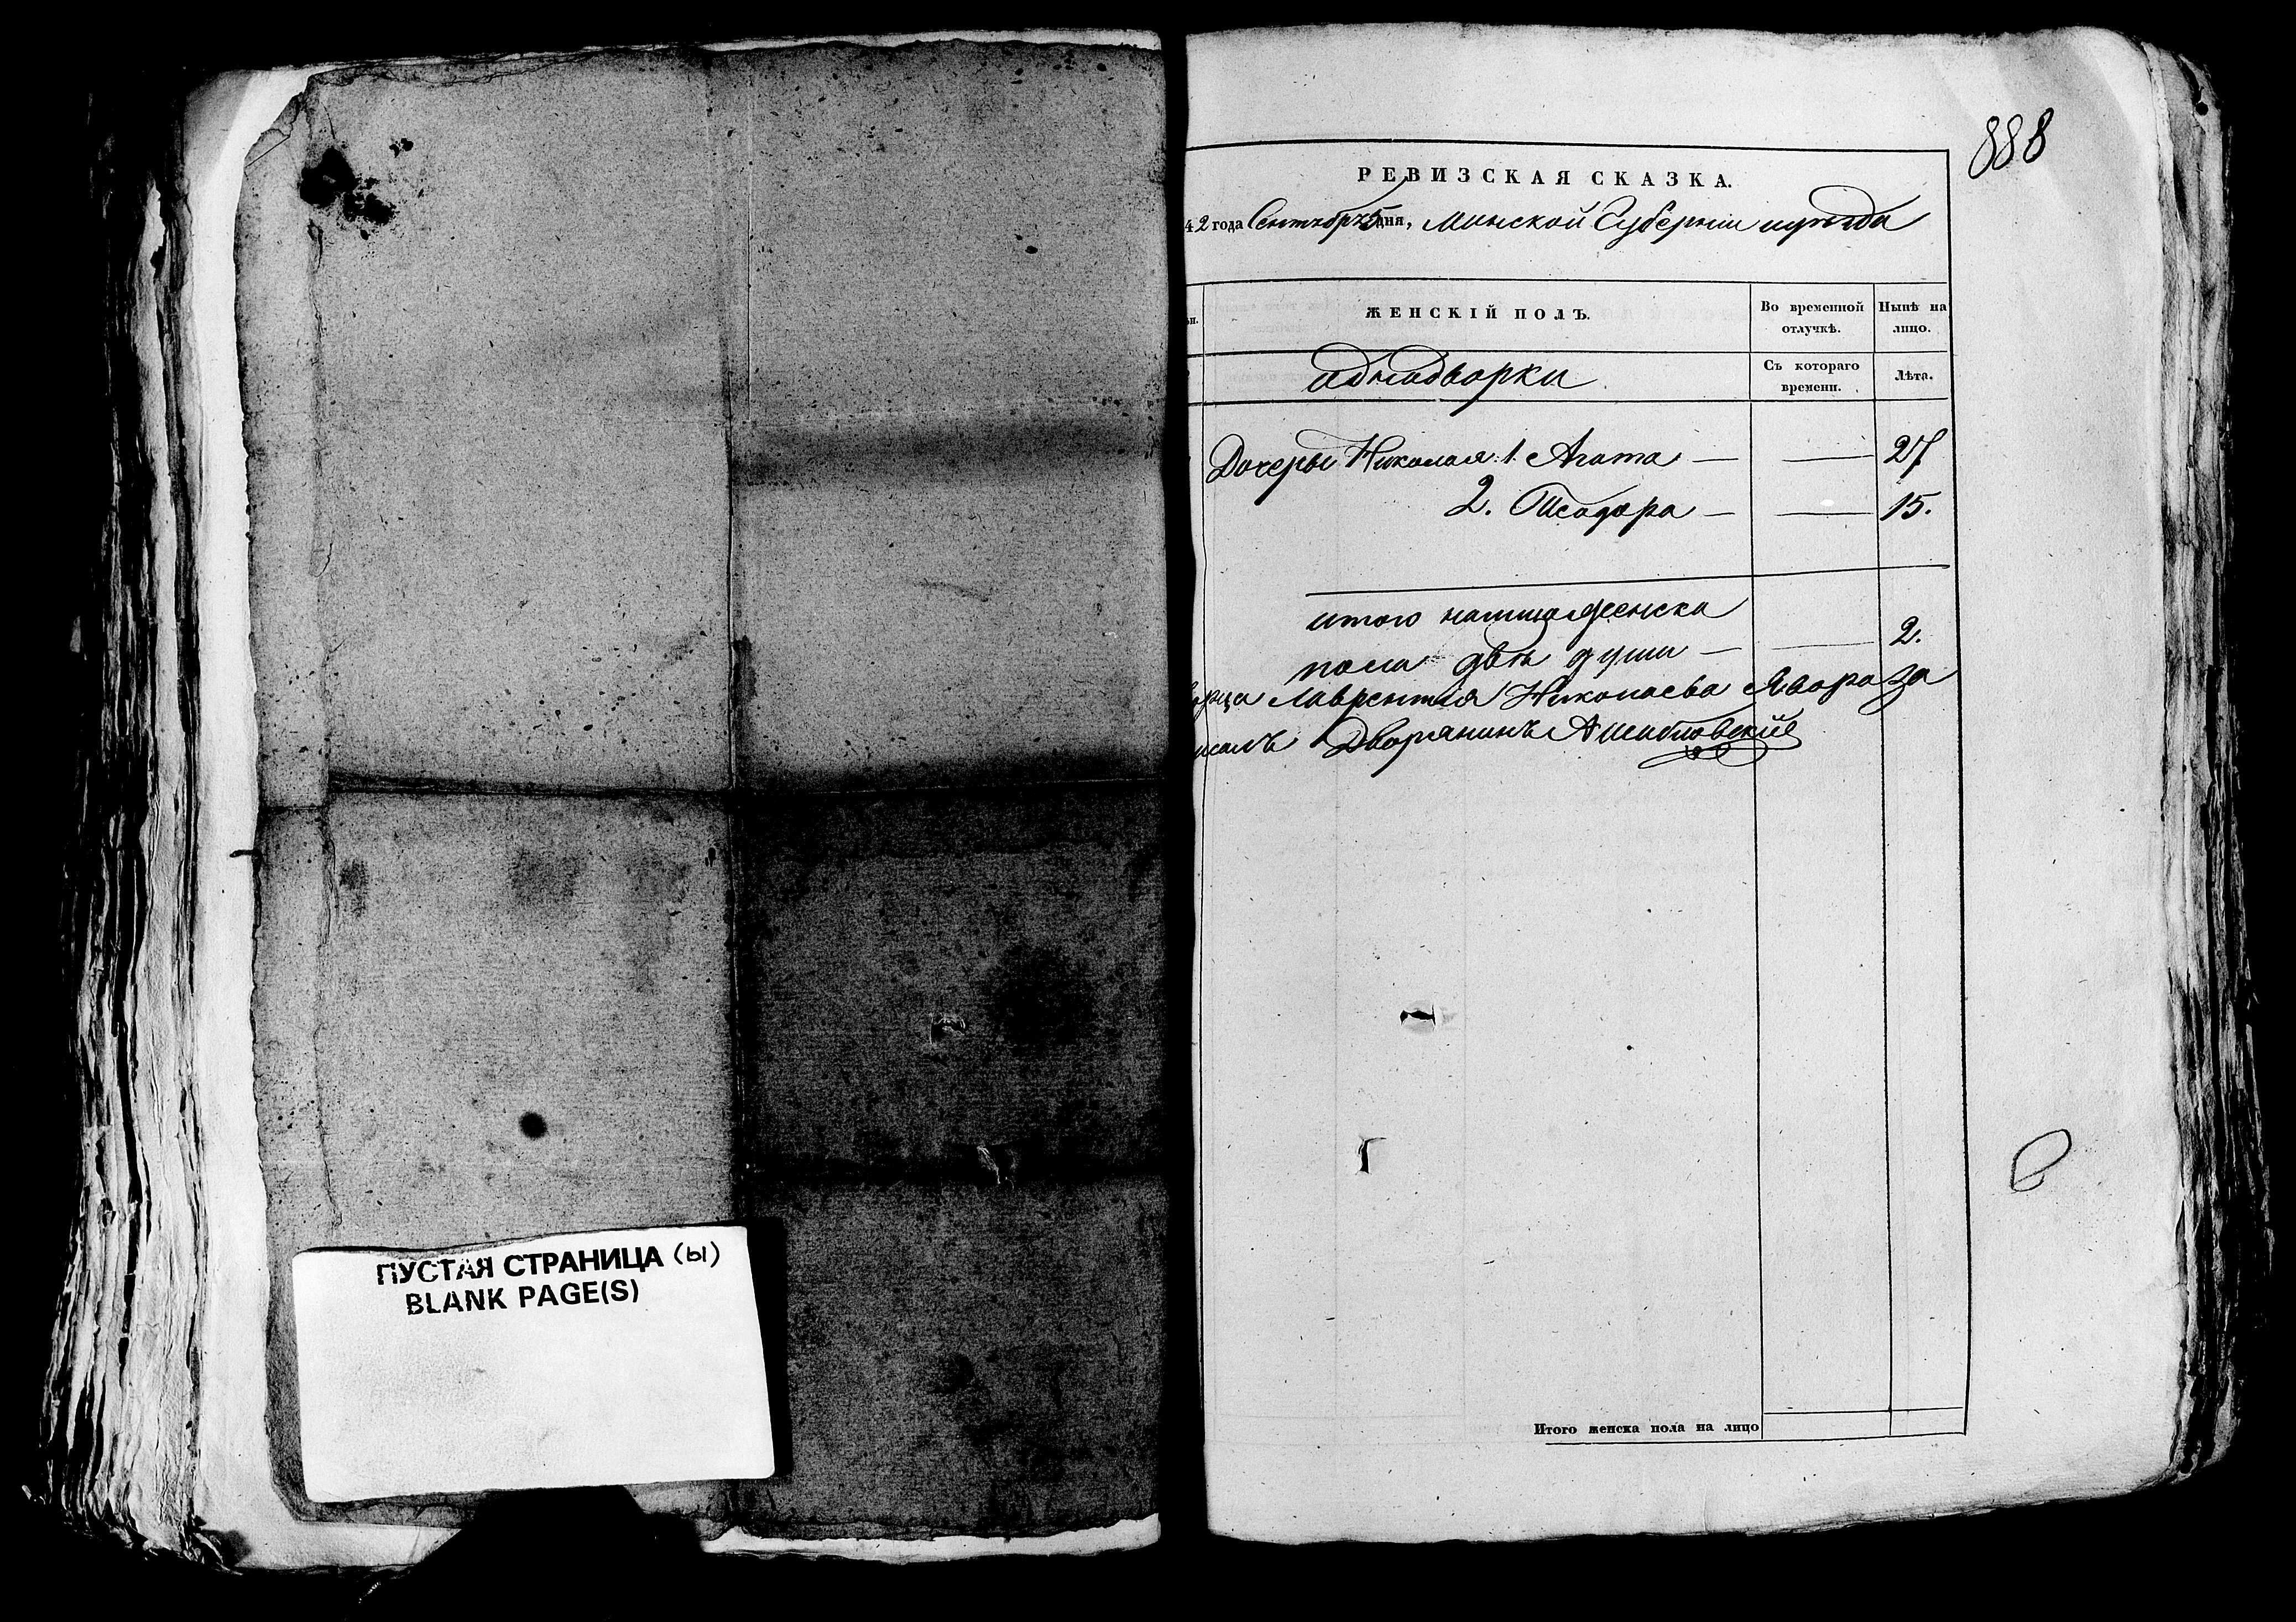 888
РЕВИЗСКАЯ СКАЗКА.
42 года Сентября 5 дня, Минской Губернии и уезда
ЖЕНСКІЙ ПОЛЪ.
Во временной отлучкѣ.
Нынѣ на лицо.
аднадворки
Съ котораго времени.
Лѣта.
Дочеры Николая: 1. Агата — — 27
2. Теодора — — 15.
итого налицо женска
пола двѣ души — — 2.
Лаврентія Николаева Явора за
Дворянинъ
Итого женска пола на лицо
ПУСТАЯ СТРАНИЦА (Ы)
BLANK PAGE(S)